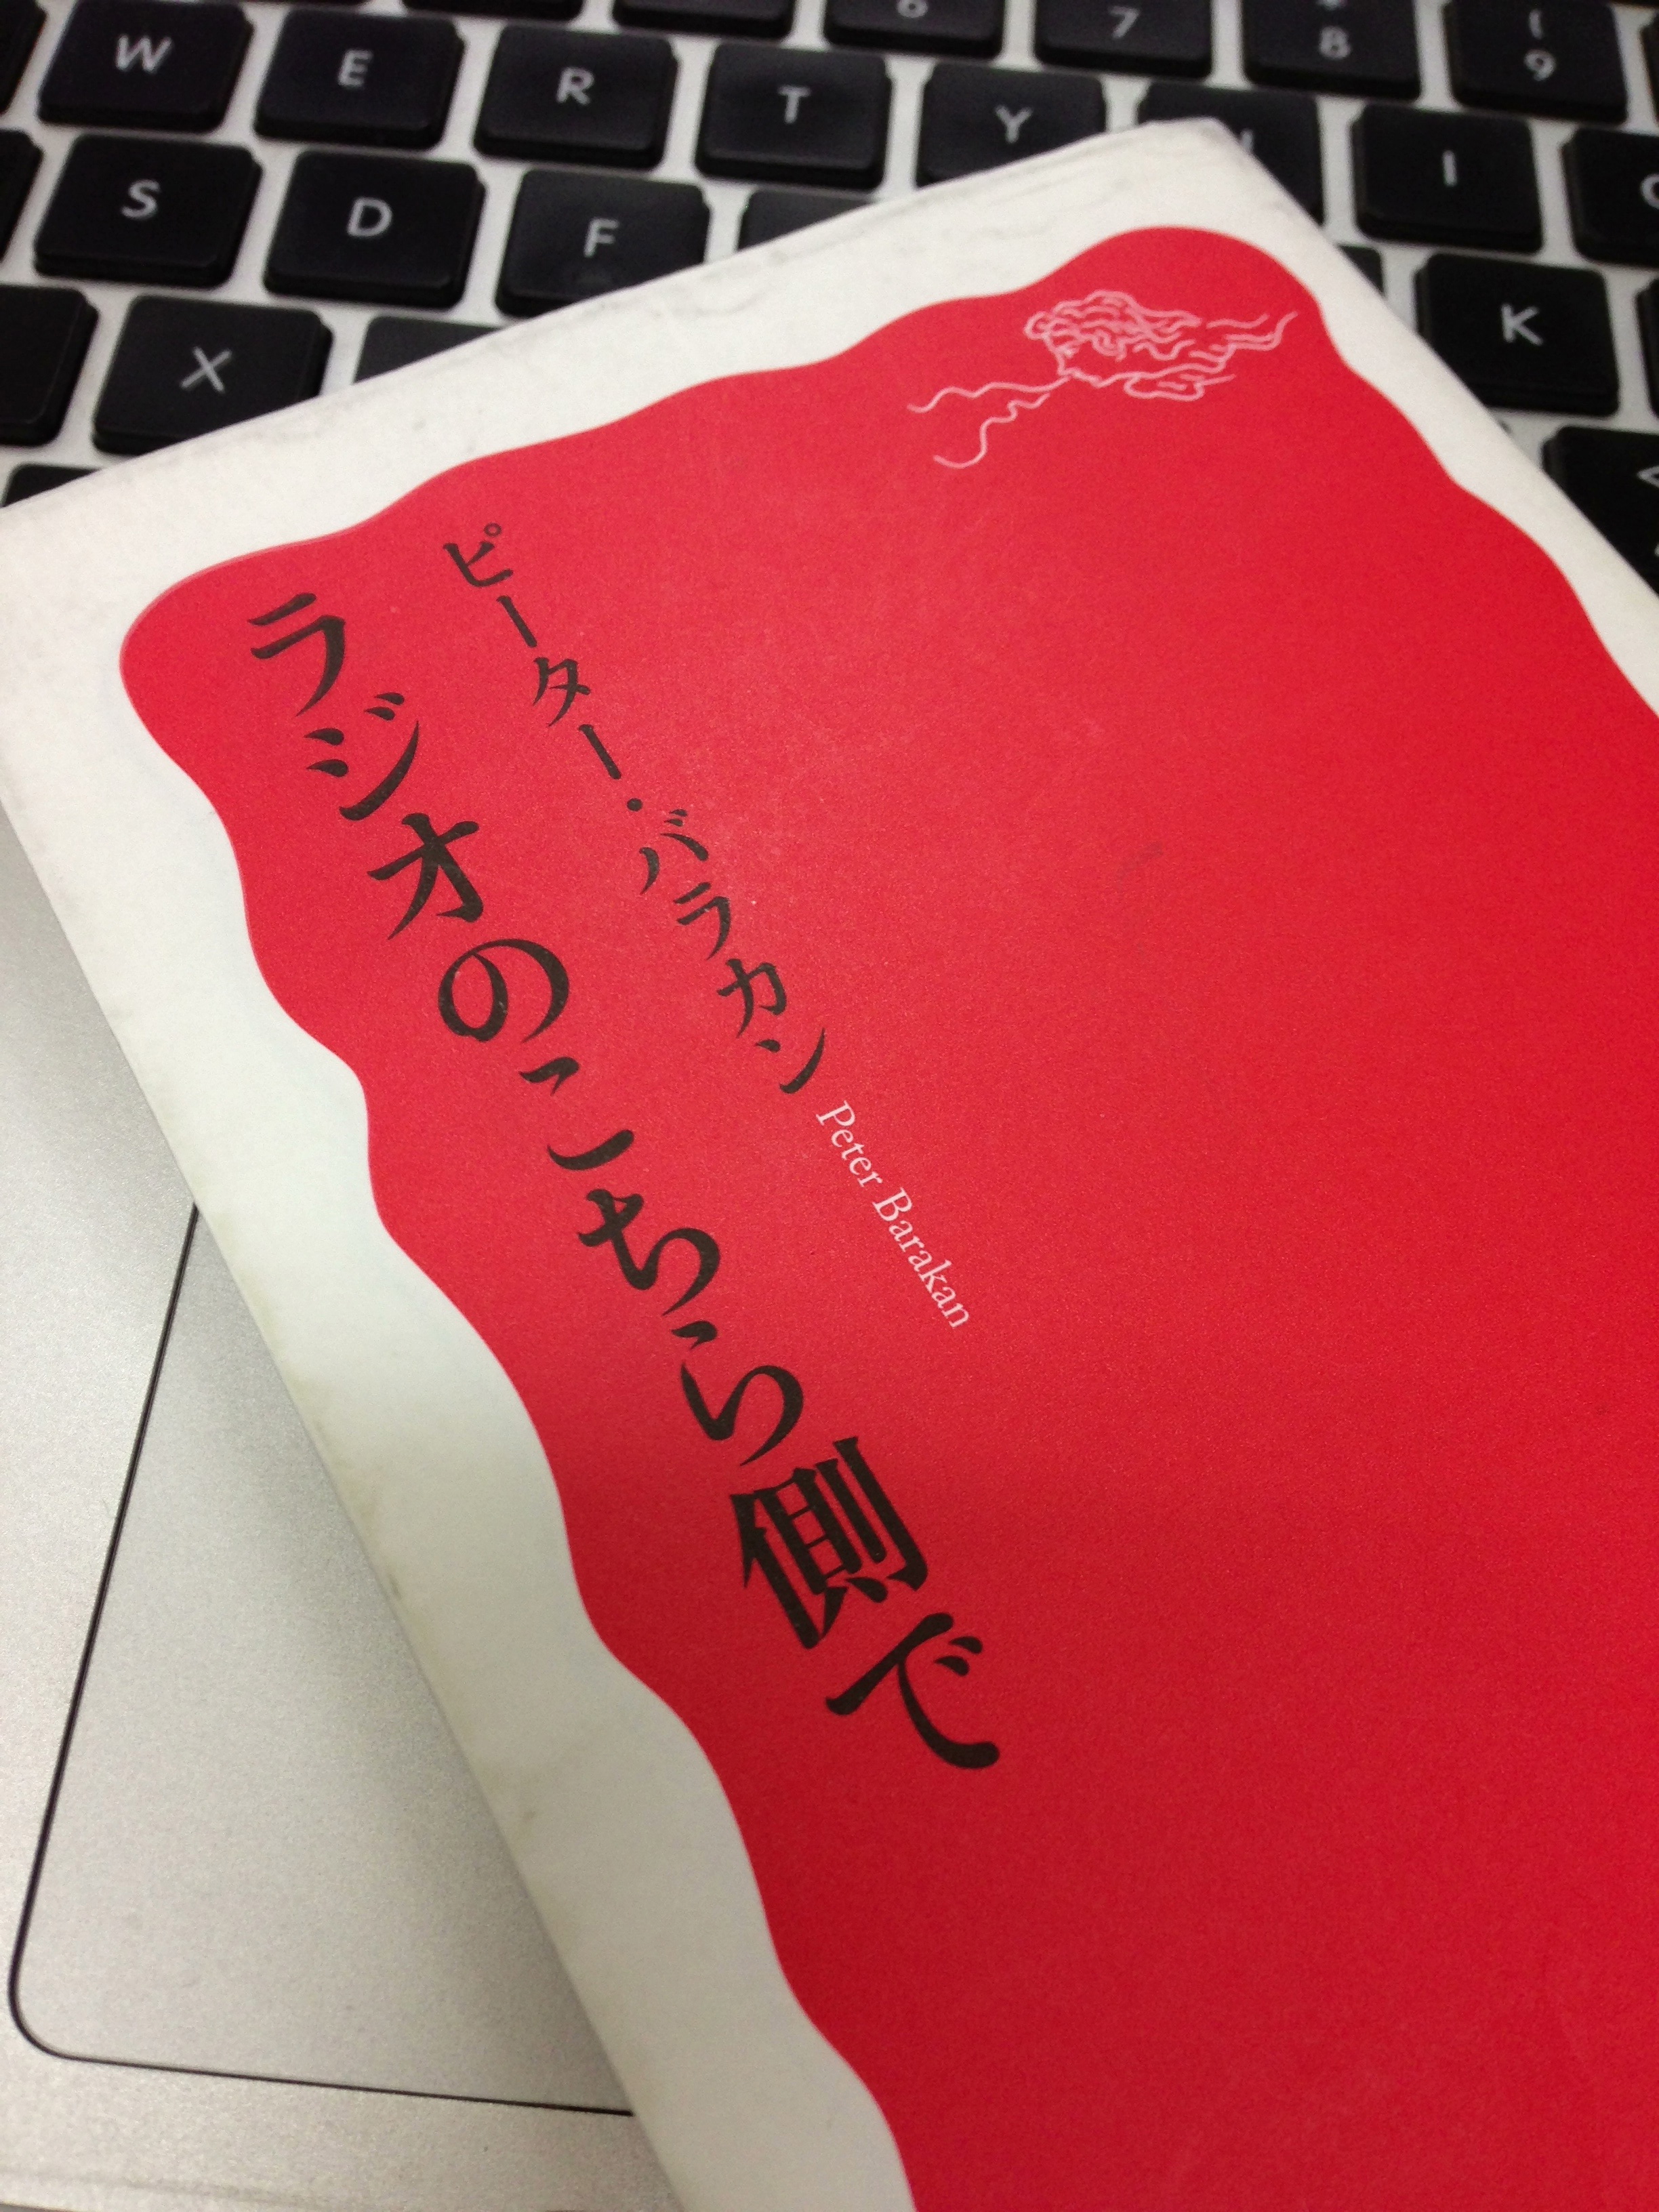 6 7 * 8 ( 9
W E R T Y I
S D F K
X
ピーター・バラカン Peter Barakan
ラジオのこちら側で